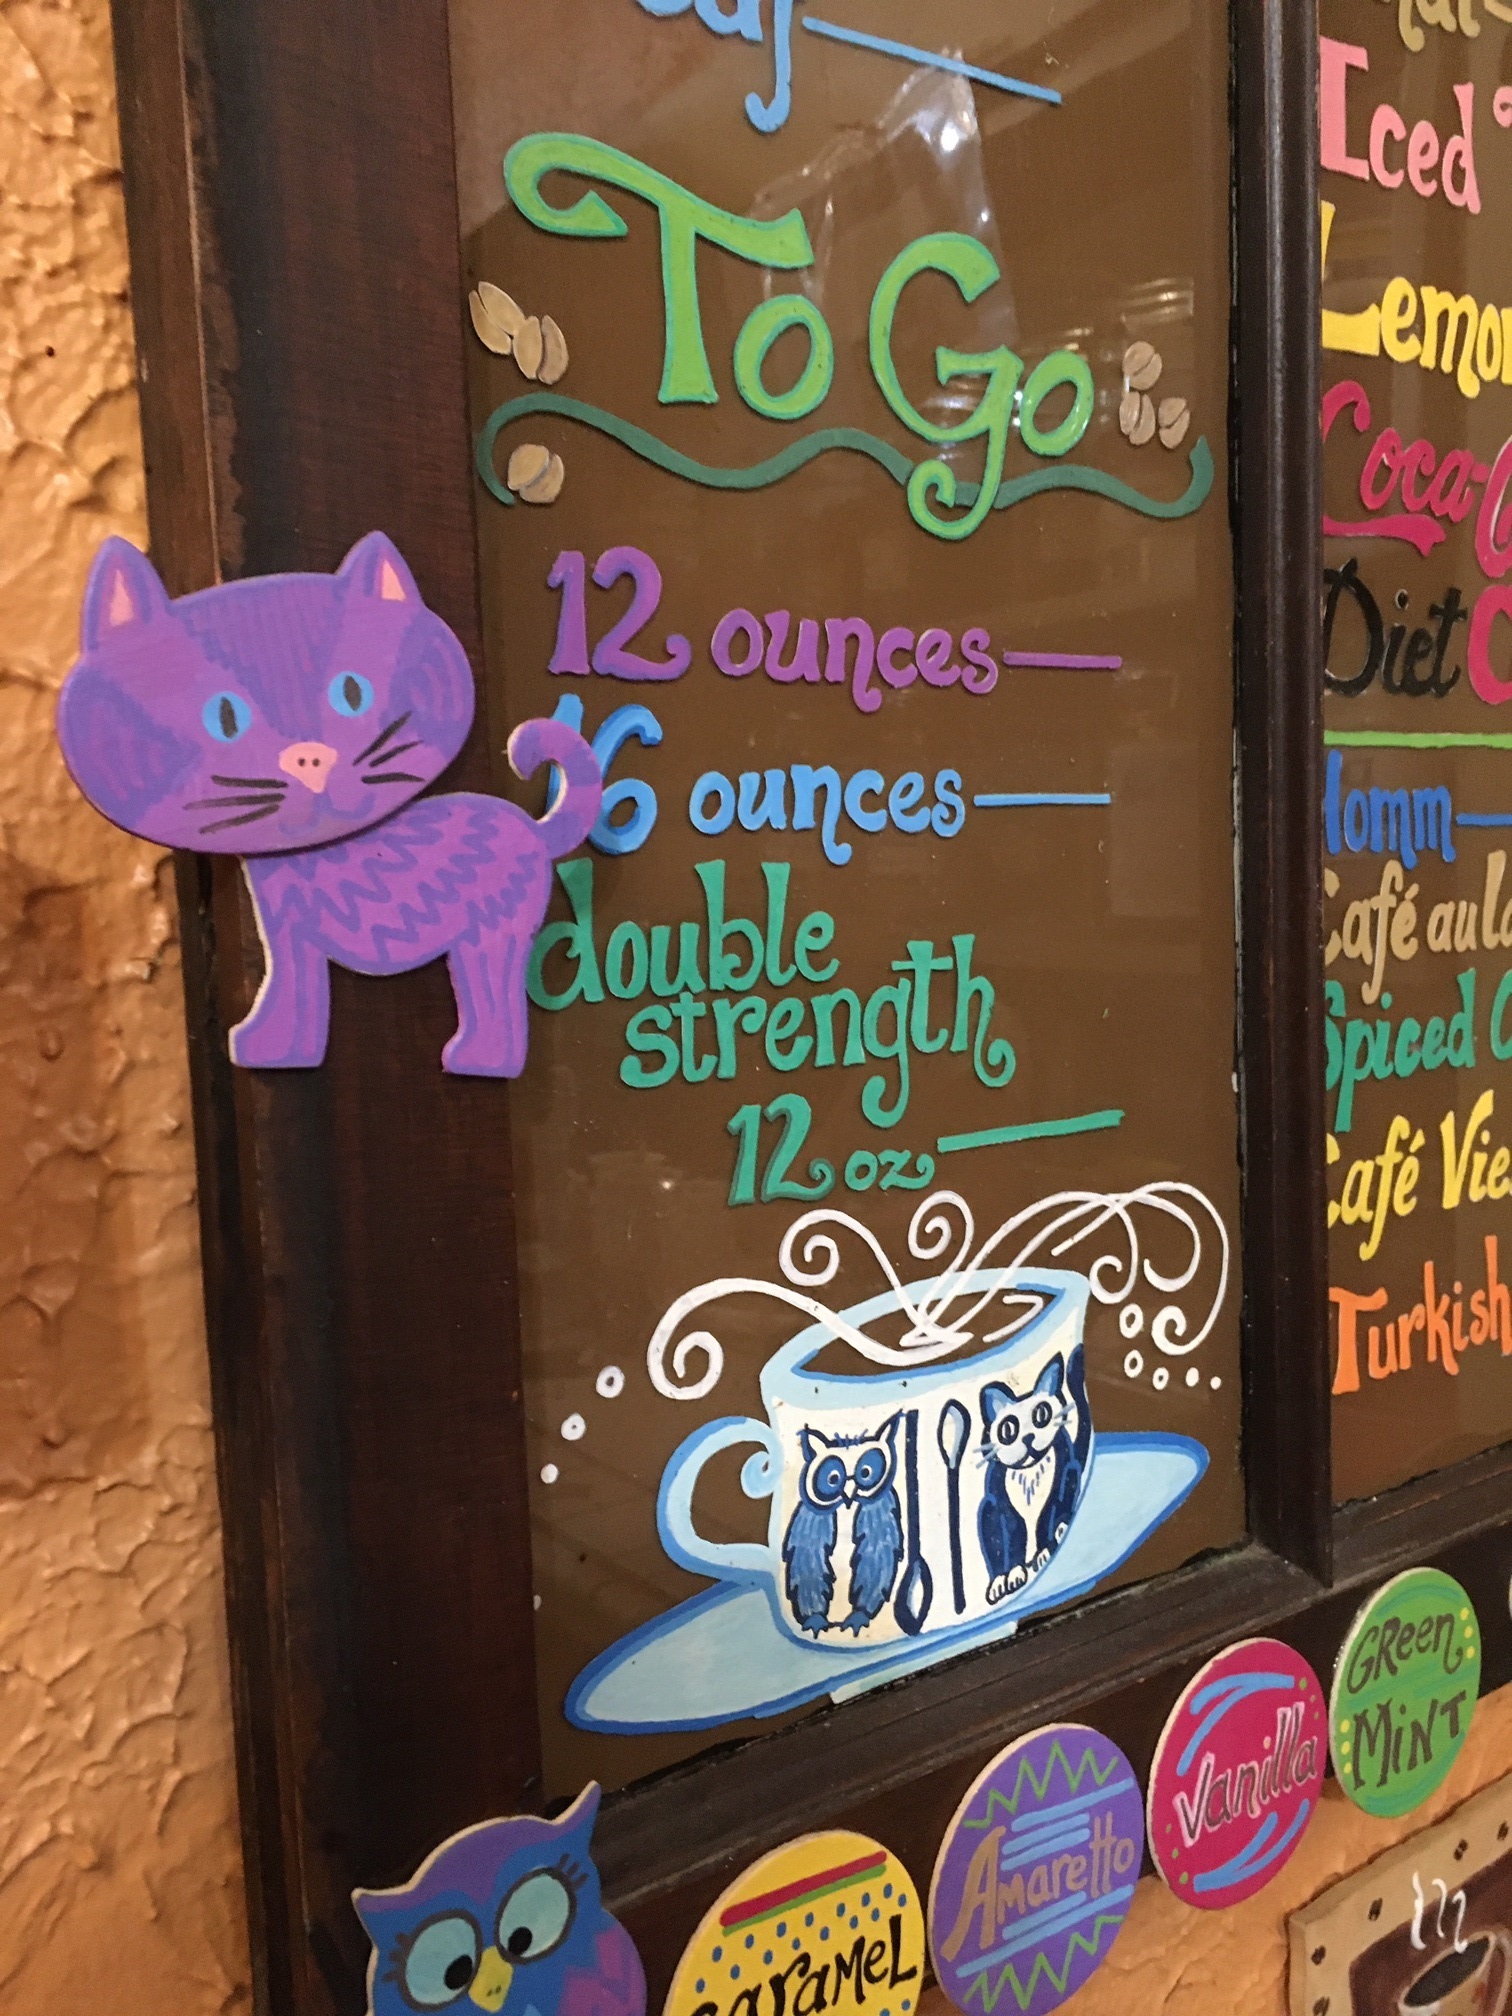 To Go
12 ounces
16 ounces
double
strength
12 oz
Iced
Coca-
Diet
Café
Spiced
Café
Turkish
Caramel
Amaretto
Vanilla
Green
Mint